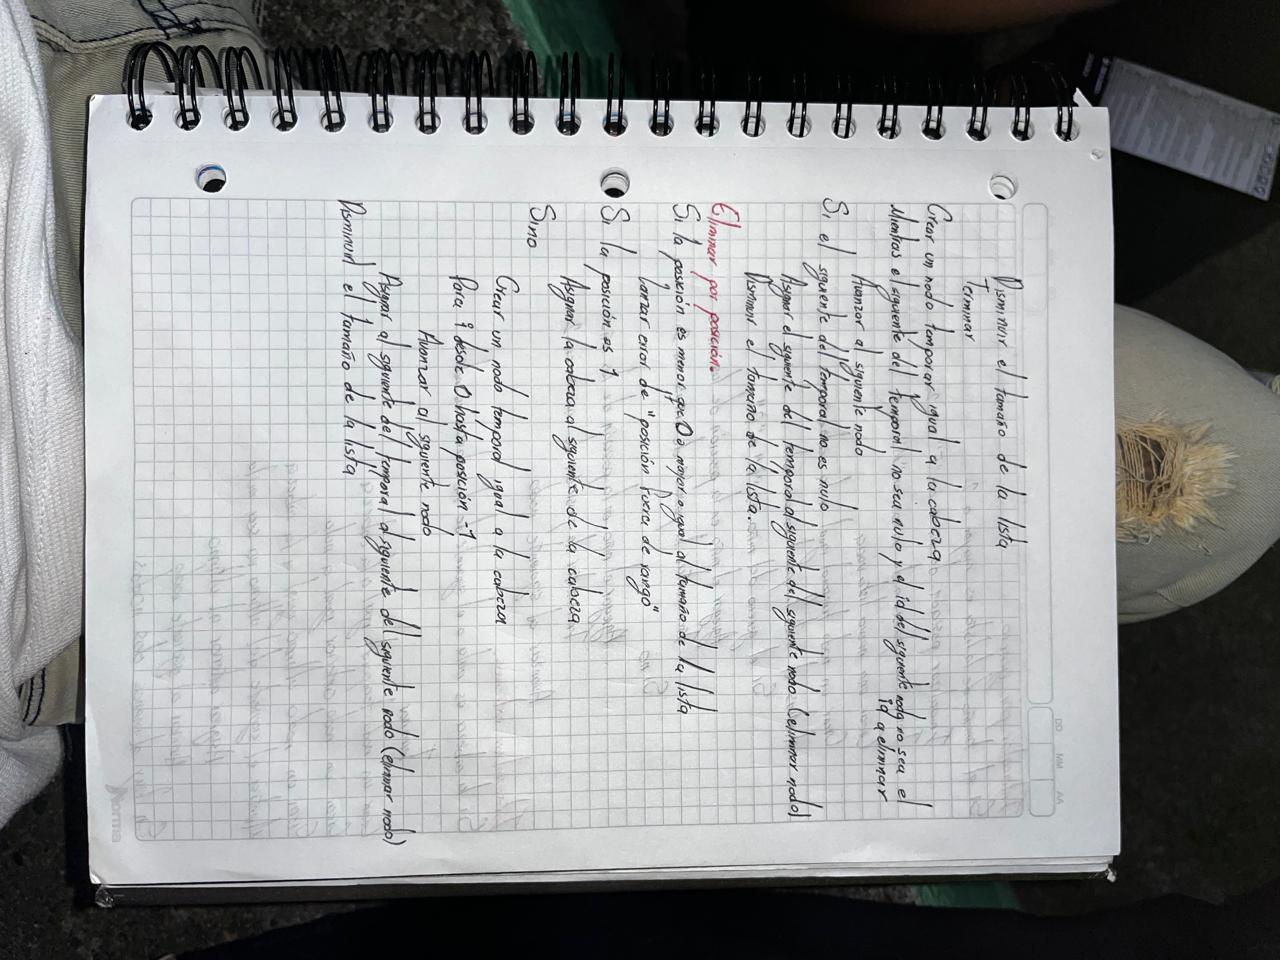 Disminuir el tamaño de la lista
Terminar
Crear un nodo temporar igual a la cabeza
Mientras el siguiente del temporal no sea nulo y el id del siguiente nodo no sea el
id a eliminar
Avanzar al siguiente nodo
Si el siguiente del temporal no es nulo
Asignar el siguiente del temporal al siguiente del siguiente nodo (eliminar nodo)
Disminuir el tamaño de la lista.
Eliminar por posición.
Si la posición es menor que 0 o mayor o igual al tamaño de la lista
Lanzar error de "posición fuera de rango"
Si la posición es 1
Asignar la cabeza al siguiente de la cabeza
Sino
Crear un nodo temporal igual a la cabeza
Para i desde 0 hasta posición -1
Avanzar al siguiente nodo
Asignar al siguiente del temporal al siguiente del siguiente nodo (eliminar nodo)
Disminuir el tamaño de la lista
DD MM AA
norma